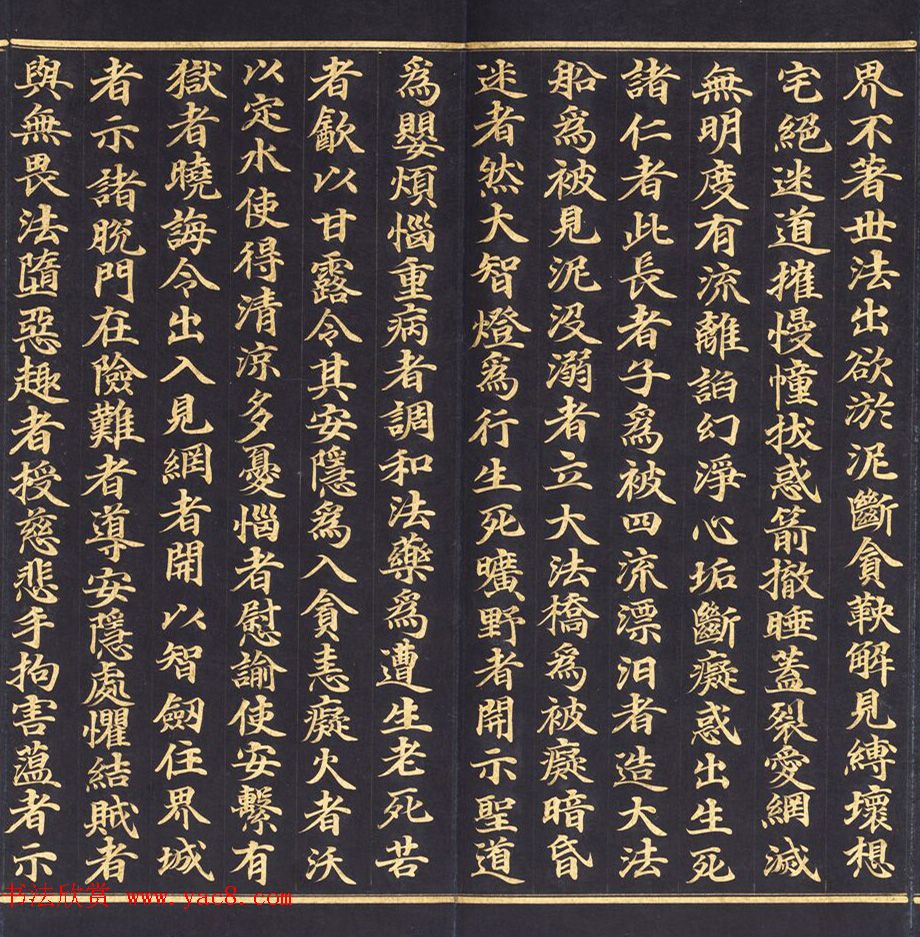 界不著世法出欲淤泥斷貪鞅解見縛壞想
宅絕迷道摧慢幢拔惑箭撤睡蓋裂愛網滅
無明度有流離諂幻淨心垢斷癡惑出生死
諸仁者此長者子為被四流漂汩者造大法
船為被見泥沒溺者立大法橋為被癡暗昏
迷者然大智燈為行生死曠野者開示聖道
為嬰煩惱重病者調和法藥為遭生老死苦
者飲以甘露令其安隱為入貪恚癡火者沃
以定水使得清涼多憂惱者慰諭使安繫有
獄者曉誨令出入見網者開以智劒住界城
者示諸脫門在險難者導安隱處懼結賊者
與無畏法墮惡趣者授慈悲手拘害薀者示
书法欣赏 www.yac8.com